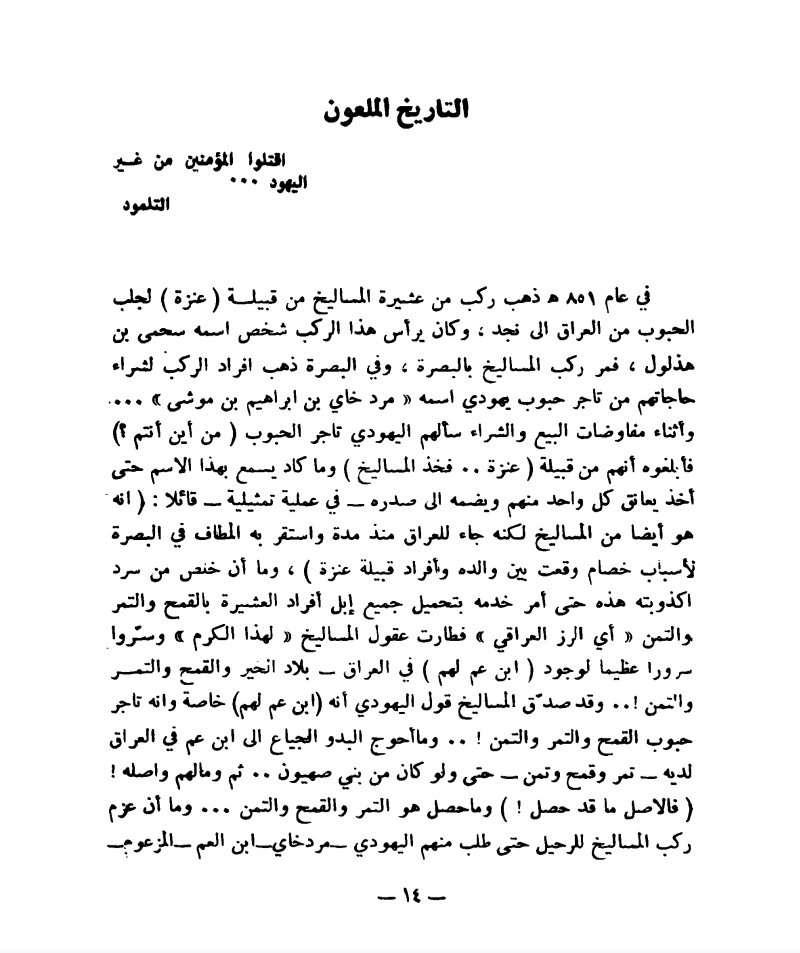 التاريخ الملعون
اقتلوا المؤمنين من غــير
اليهود ...
التلمود
في عام ٨٥١ هـ ذهب ركب من عشيرة المساليخ من قبيلــة ( عنزة ) لجلب
الحبوب من العراق الى نجد ، وكان يرأس هذا الركب شخص اسمه سحمى بن
هذلول ، فمر ركب المساليخ بالبصرة ، وفي البصرة ذهب افراد الركب لشراء
حاجاتهم من تاجر حبوب يهودي اسمه « مرد خاي بن ابراهيم بن موشى » ...
وأثناء مفاوضات البيع والشراء سألهم اليهودي تاجر الحبوب ( من أين أنتم ؟)
فأبلغوه أنهم من قبيلة ( عنزة .. فخذ المساليخ ) وما كاد يسمع بهذا الاسم حتى
أخذ يعانق كل واحد منهم ويضمه الى صدره ــ في عملية تمثيلية ــ قائلا : ( انه
هو أيضا من المساليخ لكنه جاء للعراق منذ مدة واستقر به المطاف في البصرة
لأسباب خصام وقعت بين والده وأفراد قبيلة عنزة ) ، وما أن خلص من سرد
اكذوبته هذه حتى أمر خدمه بتحميل جميع إبل أفراد العشيرة بالقمح والتمر
والتمن « أي الرز العراقي » فطارت عقول المساليخ « لهذا الكرم » وسرّوا
سرورا عظيما لوجود ( ابن عم لهم ) في العراق ــ بلاد الخير والقمح والتمــر
والتمن !.. وقد صدّق المساليخ قول اليهودي أنه (ابن عم لهم) خاصة وانه تاجر
حبوب القمح والتمر والتمن ! .. وماأحوج البدو الجياع الى ابن عم في العراق
لديه ــ تمر وقمح وتمن ــ حتى ولو كان من بني صهيون .. ثم ومالهم واصله !
( فالاصل ما قد حصل ! ) وماحصل هو التمر والقمح والتمن ... وما أن عزم
ركب المساليخ للرحيل حتى طلب منهم اليهودي ــمردخايــ ابن العم ــالمزعومــ
ــ ١٤ ــ